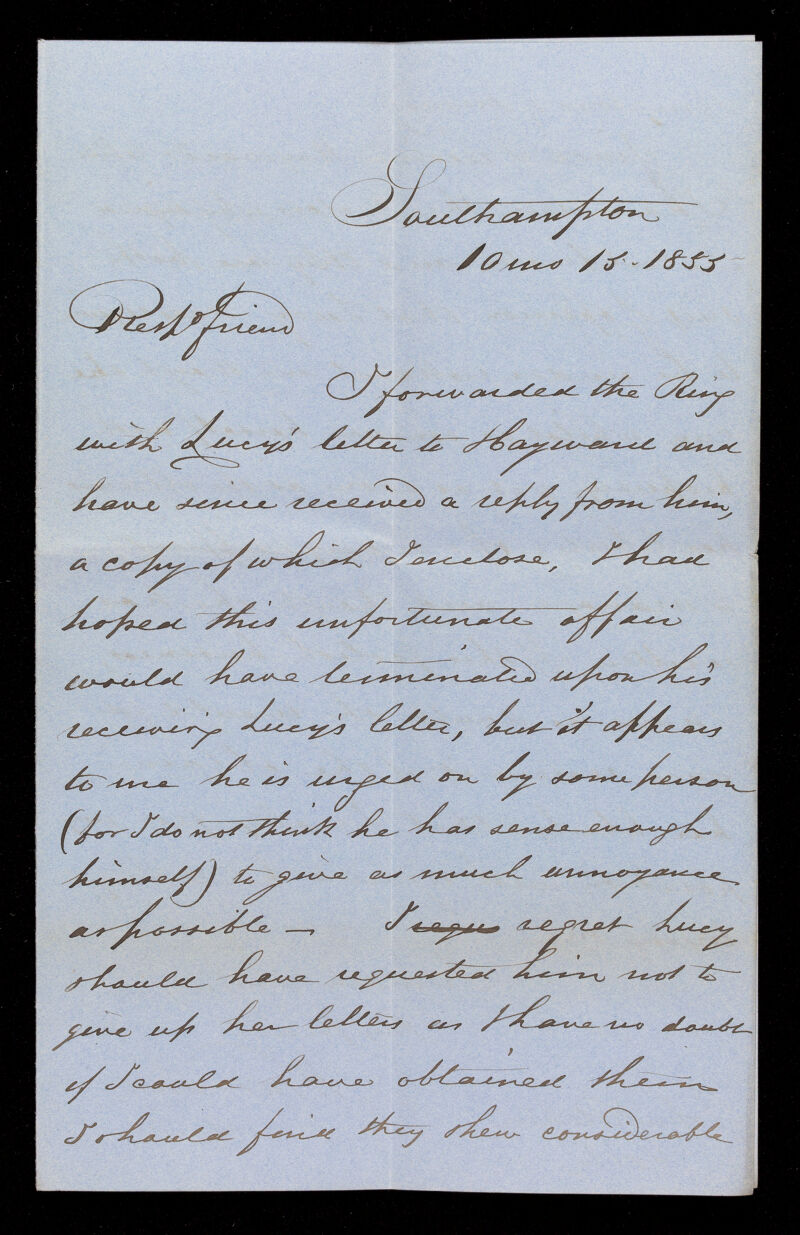 Southampton
10 mo 15. 1855
Respd friend
I forwarded the Ring
with Lucy's letter to Hayward and
have since received a reply from him,
a copy of which I enclose, I had
hoped this unfortunate affair
would have terminated upon his
receiving Lucy's letter, but it appears
to me he is urged on by some person
(for I do not think he has sense enough
himself) to give as much annoyance
as possible — I requ regret Lucy
should have requested him not to
give up her letters as I have no doubt
if I could have obtained them
I should find they shew considerable